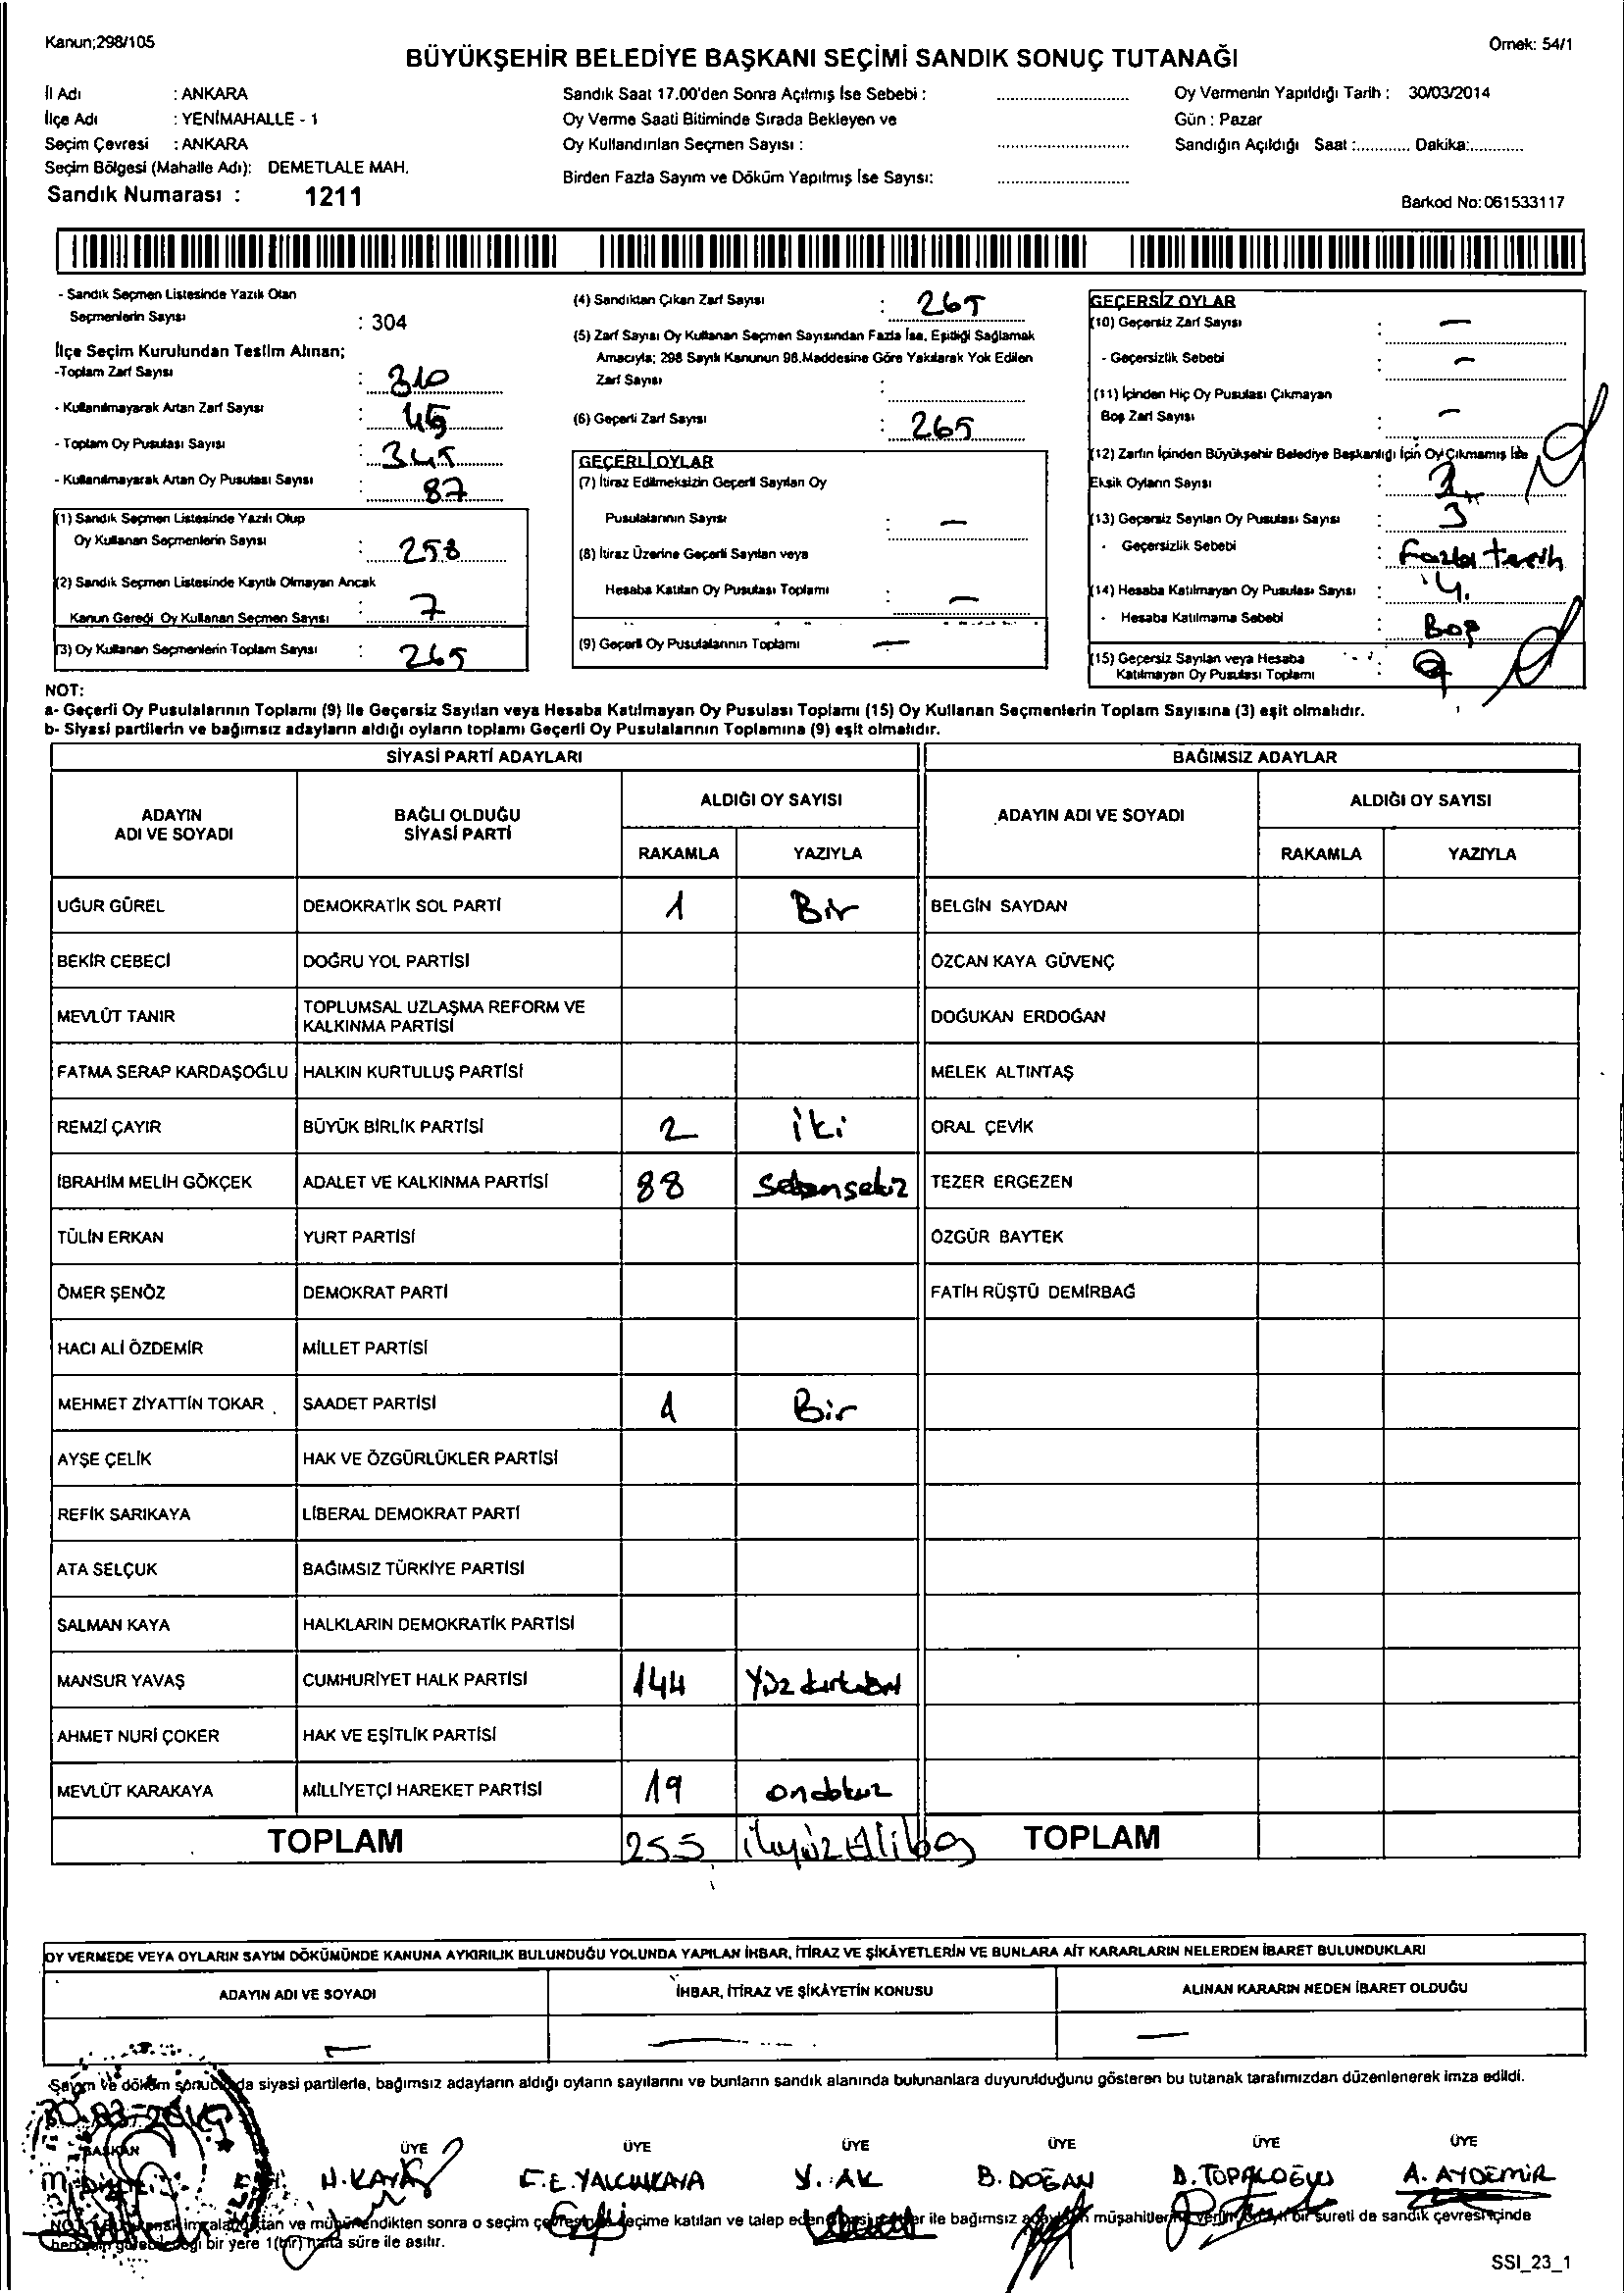 Kanun;298/105
Örnek: 54/1
BÜYÜKŞEHİR BELEDİYE BAŞKANI SEÇİMİ SANDIK SONUÇ TUTANAĞI
İl Adı : ANKARA
İlçe Adı : YENİMAHALLE - 1
Seçim Çevresi : ANKARA
Seçim Bölgesi (Mahalle Adı): DEMETLALE MAH.
Sandık Numarası : 1211
Sandık Saat 17.00'den Sonra Açılmış İse Sebebi :
Oy Verme Saati Bitiminde Sırada Bekleyen ve
Oy Kullandırılan Seçmen Sayısı :
Birden Fazla Sayım ve Döküm Yapılmış İse Sayısı:
Oy Vermenin Yapıldığı Tarih : 30/03/2014
Gün : Pazar
Sandığın Açıldığı Saat :............ Dakika:............
Barkod No: 061533117
- Sandık Seçmen Listesinde Yazılı Olan
Seçmenlerin Sayısı : 304
İlçe Seçim Kurulundan Teslim Alınan;
-Toplam Zarf Sayısı : 310
- Kullanılmayarak Artan Zarf Sayısı : 45
- Toplam Oy Pusulası Sayısı : 345
- Kullanılmayarak Artan Oy Pusulası Sayısı : 87
(1) Sandık Seçmen Listesinde Yazılı Olup
Oy Kullanan Seçmenlerin Sayısı : 258
(2) Sandık Seçmen Listesinde Kayıtlı Olmayan Ancak
Kanun Gereği Oy Kullanan Seçmen Sayısı : 7
(3) Oy Kullanan Seçmenlerin Toplam Sayısı : 265
(4) Sandıktan Çıkan Zarf Sayısı : 265
(5) Zarf Sayısı Oy Kullanan Seçmen Sayısından Fazla İse, Eşitliği Sağlamak
Amacıyla; 298 Sayılı Kanunun 98.Maddesine Göre Yakılarak Yok Edilen
Zarf Sayısı :
(6) Geçerli Zarf Sayısı : 265
GEÇERLİ OYLAR
(7) İtiraz Edilmeksizin Geçerli Sayılan Oy
Pusulalarının Sayısı : -
(8) İtiraz Üzerine Geçerli Sayılan veya
Hesaba Katılan Oy Pusulası Toplamı : -
(9) Geçerli Oy Pusulalarının Toplamı -
GEÇERSİZ OYLAR
(10) Geçersiz Zarf Sayısı : -
- Geçersizlik Sebebi : -
(11) İçinden Hiç Oy Pusulası Çıkmayan
Boş Zarf Sayısı : -
(12) Zarfın İçinden Büyükşehir Belediye Başkanlığı İçin Oy Çıkmamış İse
Eksik Oyların Sayısı :
(13) Geçersiz Sayılan Oy Pusulası Sayısı : 3
- Geçersizlik Sebebi : Fazla tercih
(14) Hesaba Katılmayan Oy Pusulası Sayısı : 4.
- Hesaba Katılmama Sebebi : Boş
(15) Geçersiz Sayılan veya Hesaba
Katılmayan Oy Pusulası Toplamı : 9
NOT:
a- Geçerli Oy Pusulalarının Toplamı (9) ile Geçersiz Sayılan veya Hesaba Katılmayan Oy Pusulası Toplamı (15) Oy Kullanan Seçmenlerin Toplam Sayısına (3) eşit olmalıdır.
b- Siyasi partilerin ve bağımsız adayların aldığı oyların toplamı Geçerli Oy Pusulalarının Toplamına (9) eşit olmalıdır.
SİYASİ PARTİ ADAYLARI BAĞIMSIZ ADAYLAR
ADAYIN ADI VE SOYADI BAĞLI OLDUĞU SİYASİ PARTİ ALDIĞI OY SAYISI ADAYIN ADI VE SOYADI ALDIĞI OY SAYISI
RAKAMLA YAZIYLA RAKAMLA YAZIYLA
UĞUR GÜREL DEMOKRATİK SOL PARTİ 1 Bir BELGİN SAYDAN
BEKİR CEBECİ DOĞRU YOL PARTİSİ ÖZCAN KAYA GÜVENÇ
MEVLÜT TANIR TOPLUMSAL UZLAŞMA REFORM VE KALKINMA PARTİSİ DOĞUKAN ERDOĞAN
FATMA SERAP KARDAŞOĞLU HALKIN KURTULUŞ PARTİSİ MELEK ALTINTAŞ
REMZİ ÇAYIR BÜYÜK BİRLİK PARTİSİ 2 iki ORAL ÇEVİK
İBRAHİM MELİH GÖKÇEK ADALET VE KALKINMA PARTİSİ 88 Seksensekiz TEZER ERGEZEN
TÜLİN ERKAN YURT PARTİSİ ÖZGÜR BAYTEK
ÖMER ŞENÖZ DEMOKRAT PARTİ FATİH RÜŞTÜ DEMİRBAĞ
HACI ALİ ÖZDEMİR MİLLET PARTİSİ
MEHMET ZİYATTİN TOKAR SAADET PARTİSİ 1 Bir
AYŞE ÇELİK HAK VE ÖZGÜRLÜKLER PARTİSİ
REFİK SARIKAYA LİBERAL DEMOKRAT PARTİ
ATA SELÇUK BAĞIMSIZ TÜRKİYE PARTİSİ
SALMAN KAYA HALKLARIN DEMOKRATİK PARTİSİ
MANSUR YAVAŞ CUMHURİYET HALK PARTİSİ 144 Yüz kırkdört
AHMET NURİ ÇOKER HAK VE EŞİTLİK PARTİSİ
MEVLÜT KARAKAYA MİLLİYETÇİ HAREKET PARTİSİ 19 ondokuz
TOPLAM 255 ikiyüzEllibeş TOPLAM
OY VERMEDE VEYA OYLARIN SAYIM DÖKÜMÜNDE KANUNA AYKIRILIK BULUNDUĞU YOLUNDA YAPILAN İHBAR, İTİRAZ VE ŞİKÂYETLERİN VE BUNLARA AİT KARARLARIN NELERDEN İBARET BULUNDUKLARI
ADAYIN ADI VE SOYADI İHBAR, İTİRAZ VE ŞİKÂYETİN KONUSU ALINAN KARARIN NEDEN İBARET OLDUĞU
- - -
Sayım ve döküm sonucunda siyasi partilerle, bağımsız adayların aldığı oyların sayılarını ve bunların sandık alanında bulunanlara duyurulduğunu gösteren bu tutanak tarafımızdan düzenlenerek imza edildi.
BAŞKAN ÜYE ÜYE ÜYE ÜYE ÜYE ÜYE
N.KAYA F.E. YALÇINKAYA Y. AK B. DOĞAN D. TOPALOĞLU A. AYDEMİR
ve mühürlendikten sonra o seçim çevresinde seçime katılan ve talep eden siyasi partiler ile bağımsız adayların müşahitlerine verilir. bir sureti de sandık çevresi içinde
bir yere 1(bir) hafta süre ile asılır.
SSI_23_1